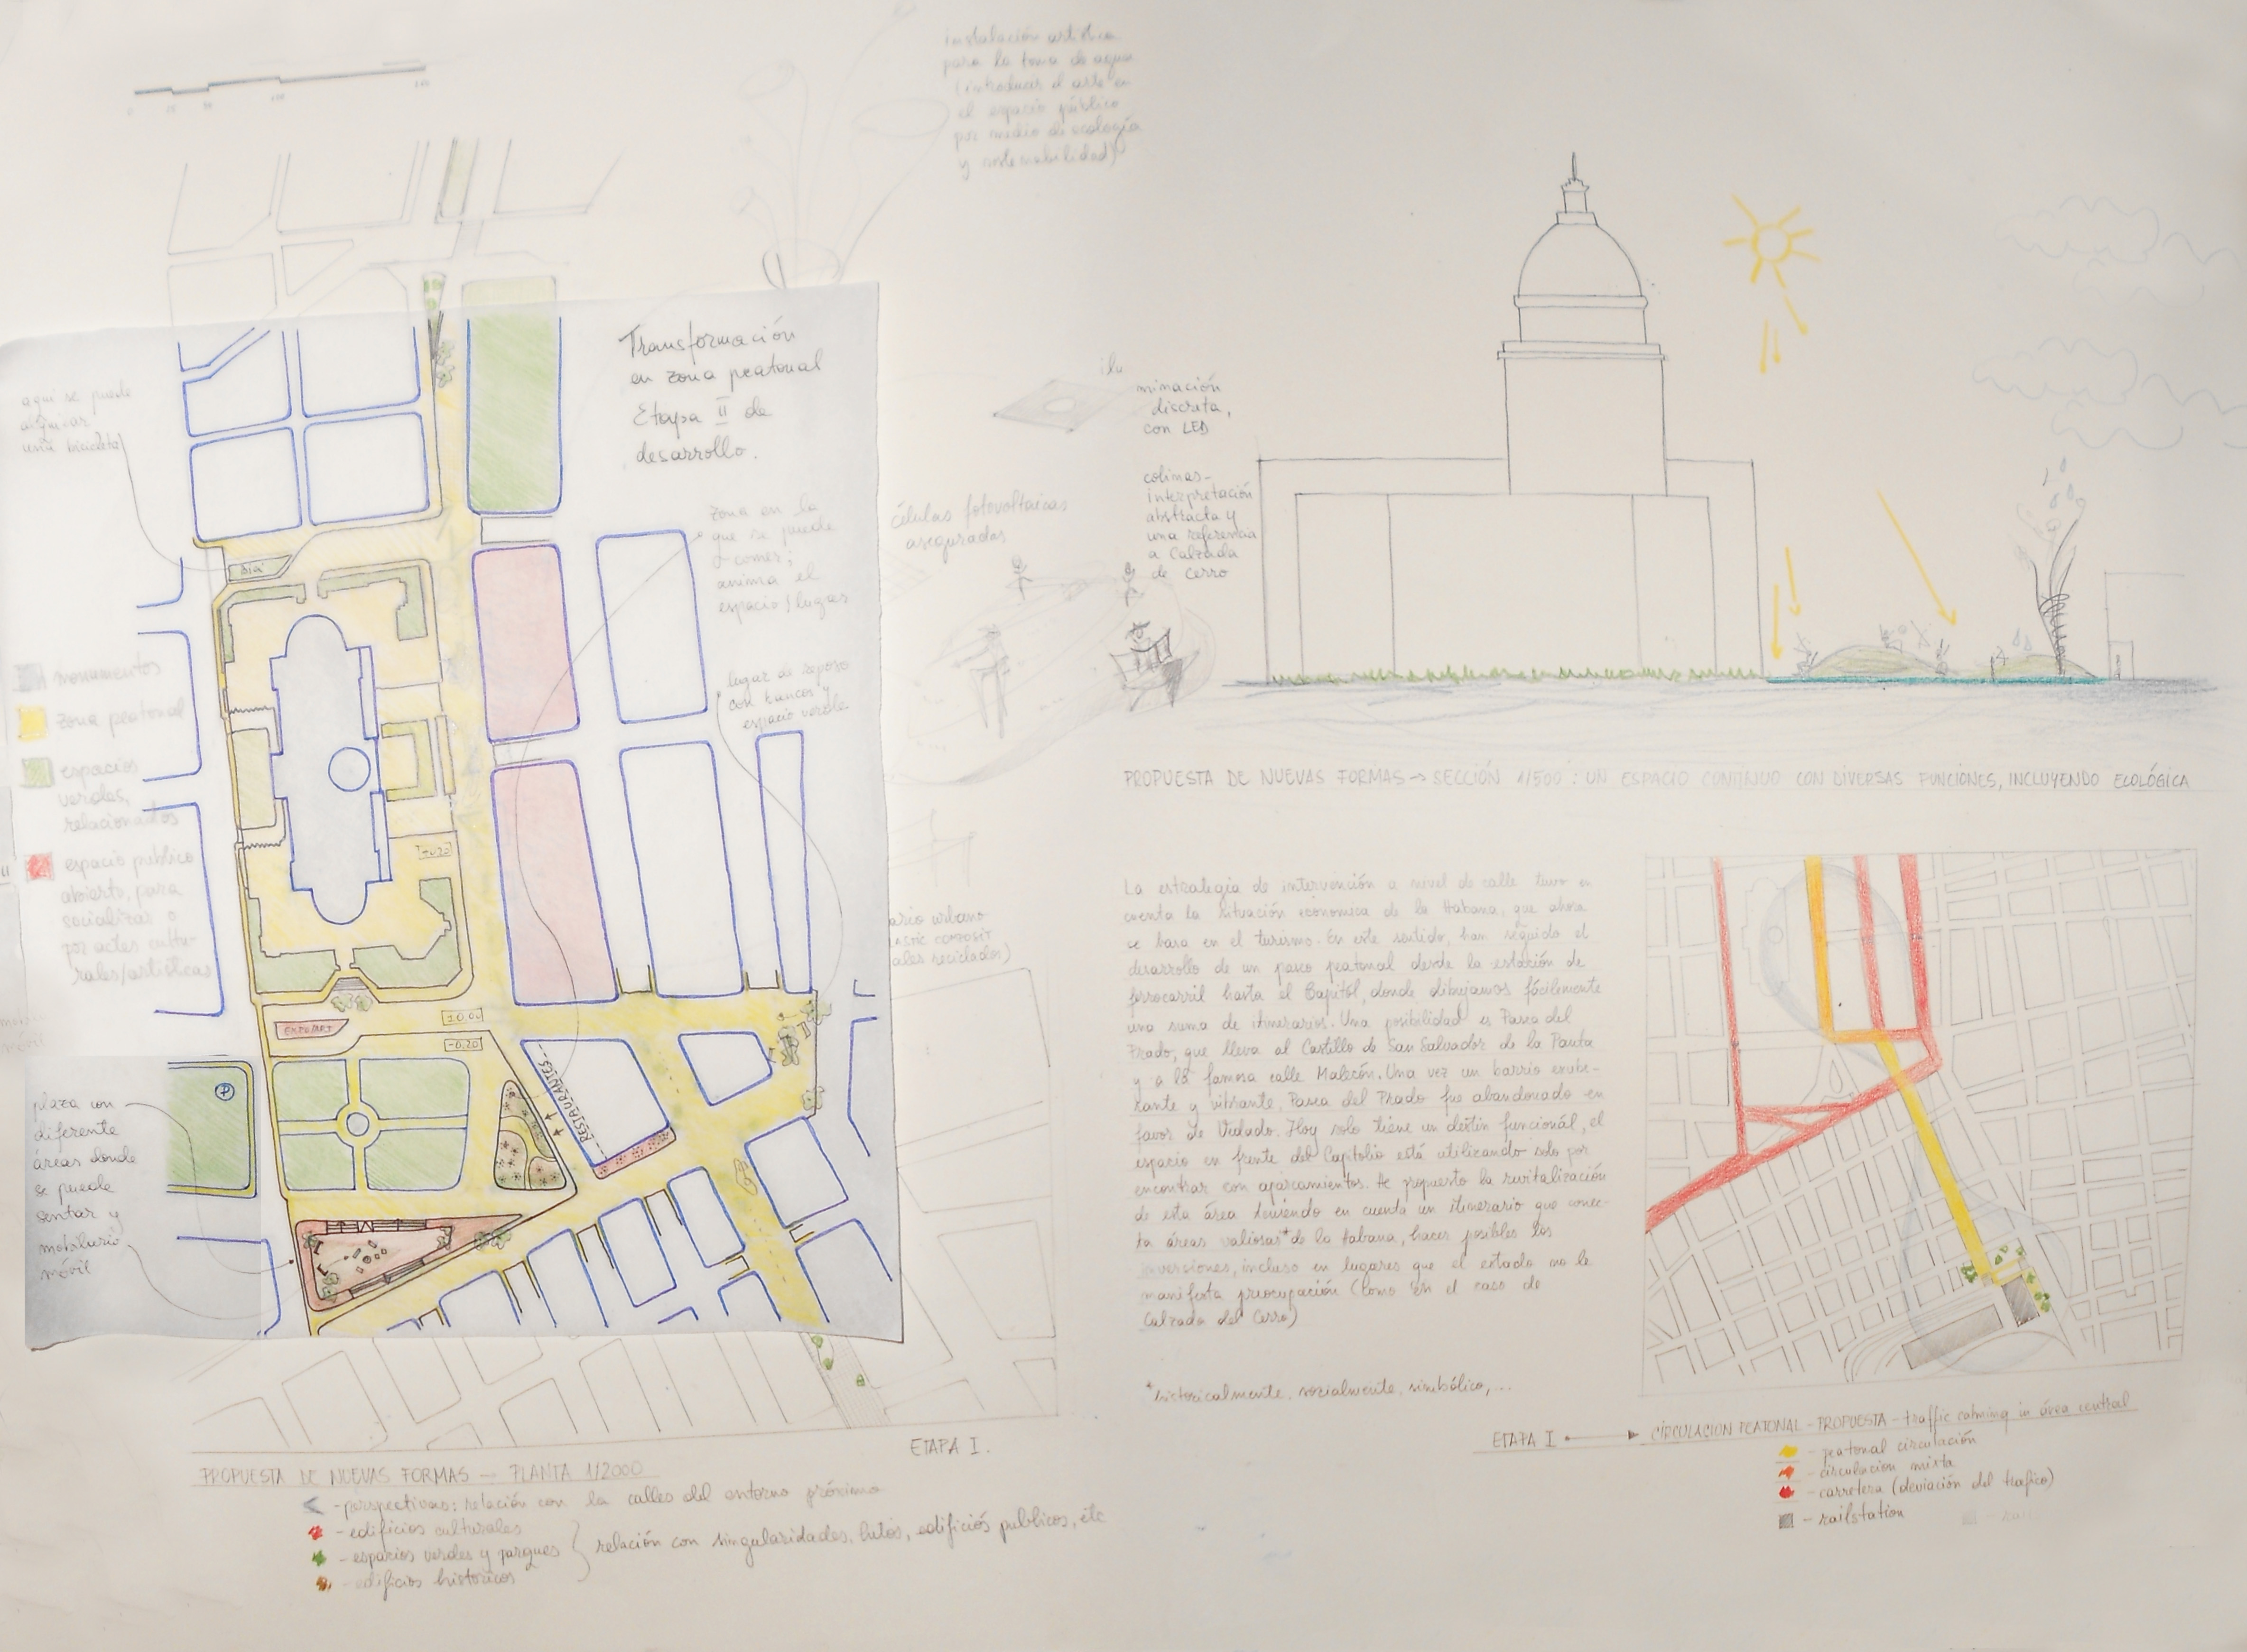 instalación artística
para la toma de agua
(introducir el arte en
el espacio público
por medio de ecología
y sostenabilidad)
Transformación
en zona peatonal
Etapa II de
desarrollo.
aquí se puede
alquilar
una bicicleta
zona en la
que se puede
comer;
anima el
espacio/lugar
lugar de reposo
con bancos y
espacio verde
monumentos
zona peatonal
espacios
verdes,
relacionados
espacio público
abierto, para
socializar o
por actes cultu-
rales/artísticas
plaza con
diferente
áreas donde
se puede
sentar y
mobilario
móvil
RESTAURANTES
±0.00
-0.20
P
ilu
minación
discreta,
con LED
células fotovoltaicas
aseguradas
colinas-
interpretación
abstracta y
una referencia
a Calzada
de Cerro
ario urbano
ales reciclados)
ETAPA I.
PROPUESTA DE NUEVAS FORMAS → PLANTA 1/2000
- perspectivas: relación con la calles del entorno próximo
- edificios culturales
- espacios verdes y parques
- edificios históricos
relación con singularidades, hitos, edificiós publicos, etc
PROPUESTA DE NUEVAS FORMAS → SECCIÓN 1/500: UN ESPACIO CONTINUO CON DIVERSAS FUNCIONES, INCLUYENDO ECOLÓGICA
La estrategia de intervención a nivel de calle tuvo en
cuenta la situación económica de la Habana, que ahora
se basa en el turismo. En este sentido, han seguido el
desarrollo de un paseo peatonal desde la estación de
ferrocarril hasta el Capitól, donde dibujamos fácilmente
una suma de itinerarios. Una posibilidad es Pasea del
Prado, que lleva al Castillo de San Salvador de la Punta
y a la famosa calle Malecón. Una vez un barrio exube-
rante y vibrante, Pasea del Prado fue abandonado en
favor de Vedado. Hoy solo tiene un destin funcionál, el
espacio en frente del Capitolio está utilizando solo por
encontrar con aparcamientos. He propuesto la revitalización
de esta área teniendo en cuenta un itinerario que conec-
ta áreas valiosas* de la Habana, hacer posibles las
inversiones, incluso en lugares que el estado no le
manifesta preocupación (como en el caso de
Calzada del Cerro)
*historicalmente, socialmente, simbólico, ...
ETAPA I → CIRCULACION PEATONAL - PROPUESTA - traffic calming in área central
- peatonal circulación
- circulacion mixta
- carretera (deviación del trafico)
- railstation